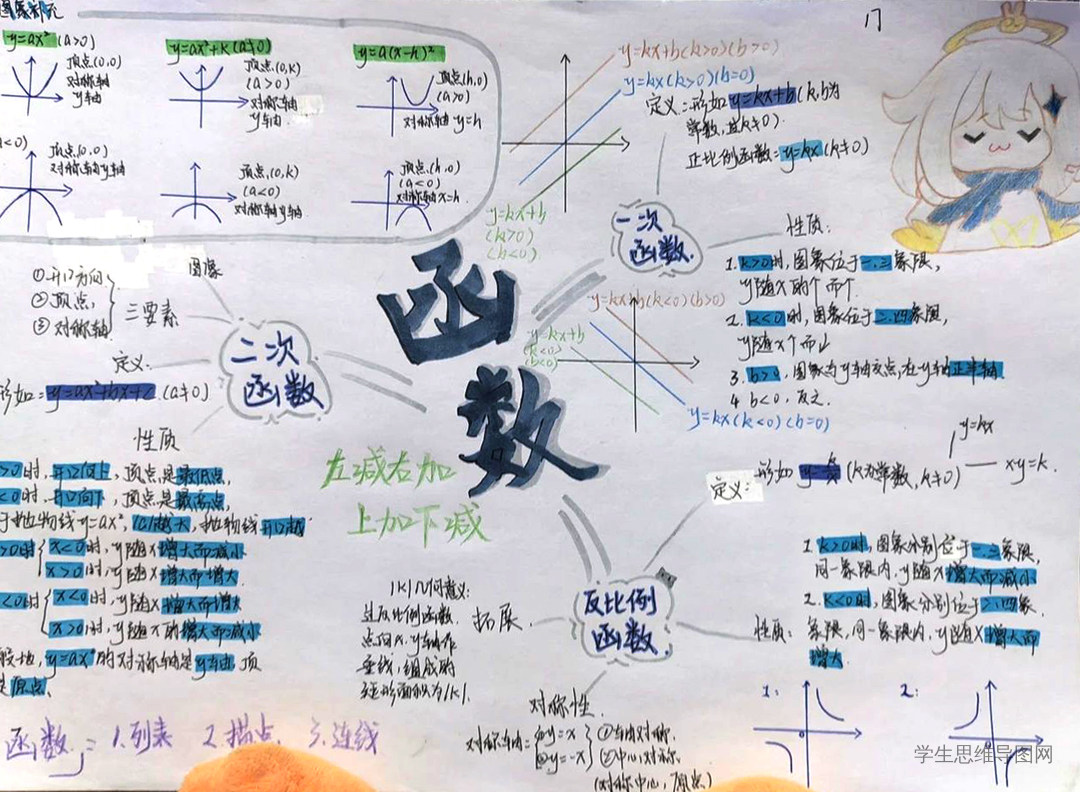 图象补充
y=ax² (a>0)
顶点(0,0)
对称轴
y轴
y=ax²+k (a≠0)
顶点(0,k)
(a>0)
对称轴
y轴
y=a(x-h)²
顶点(h,0)
(a>0)
对称轴 y=h
<0)
顶点(0,0)
对称轴y轴
顶点(0,k)
(a<0)
对称轴y轴
顶点(h,0)
(a<0)
对称轴x=h
y=kx+b(k>0)(b>0)
y=kx(k>0)(b=0)
y=kx+b
(k>0)
(b<0)
定义:形如y=kx+b(k,b为
常数,且k≠0).
正比例函数:y=kx(k≠0)
一次
函数.
性质:
1.k>0时,图象位于一.三象限,
y随x的个而个.
2.k<0时,图象位于二.四象限,
y随x个而
3.b>0,图象与y轴交点,在y轴正半轴
4 b<0,反之.
y=kx+b(k<0)(b>0)
y=kx+b
(k<0)
(b<0)
y=kx(k<0)(b=0)
函
数
二次
函数
图像
①开口方向
②顶点,
③对称轴
三要素
定义:
形如:y=ax²+bx+c.(a≠0)
性质
>0时,开口向上,顶点是最低点,
<0时,开口向下,顶点是最高点,
于抛物线y=ax²,|a|越大,抛物线开口越
>0时
x<0时,y随x增大而减小
x>0时,y随x增大而增大
<0时
x<0时,y随x增大而增大
x>0时,y随x的增大而减小
般地,y=ax²的对称轴是y轴,顶
是原点.
左减右加
上加下减
函数: 1.列表 2.描点 3.连线
反比例
函数.
定义:
形如 y=k/x (k为常数,k≠0)
y=kx
xy=k.
性质:
1.k>0时,图象分别位于一.三象限,
同一象限内,y随x增大而减小
2.k<0时,图象分别位于二.四象.
象限,同一象限内,y随x增大而
增大.
1:
2:
拓展
|k|几何意义:
过反比例函数.
点向x,y轴作
垂线,组成的
矩形面积为|k|.
对称性
对称轴=
①y=x
②y=-x
①轴对称.
②中心对称.
(对称中心,原点)
学生思维导图网